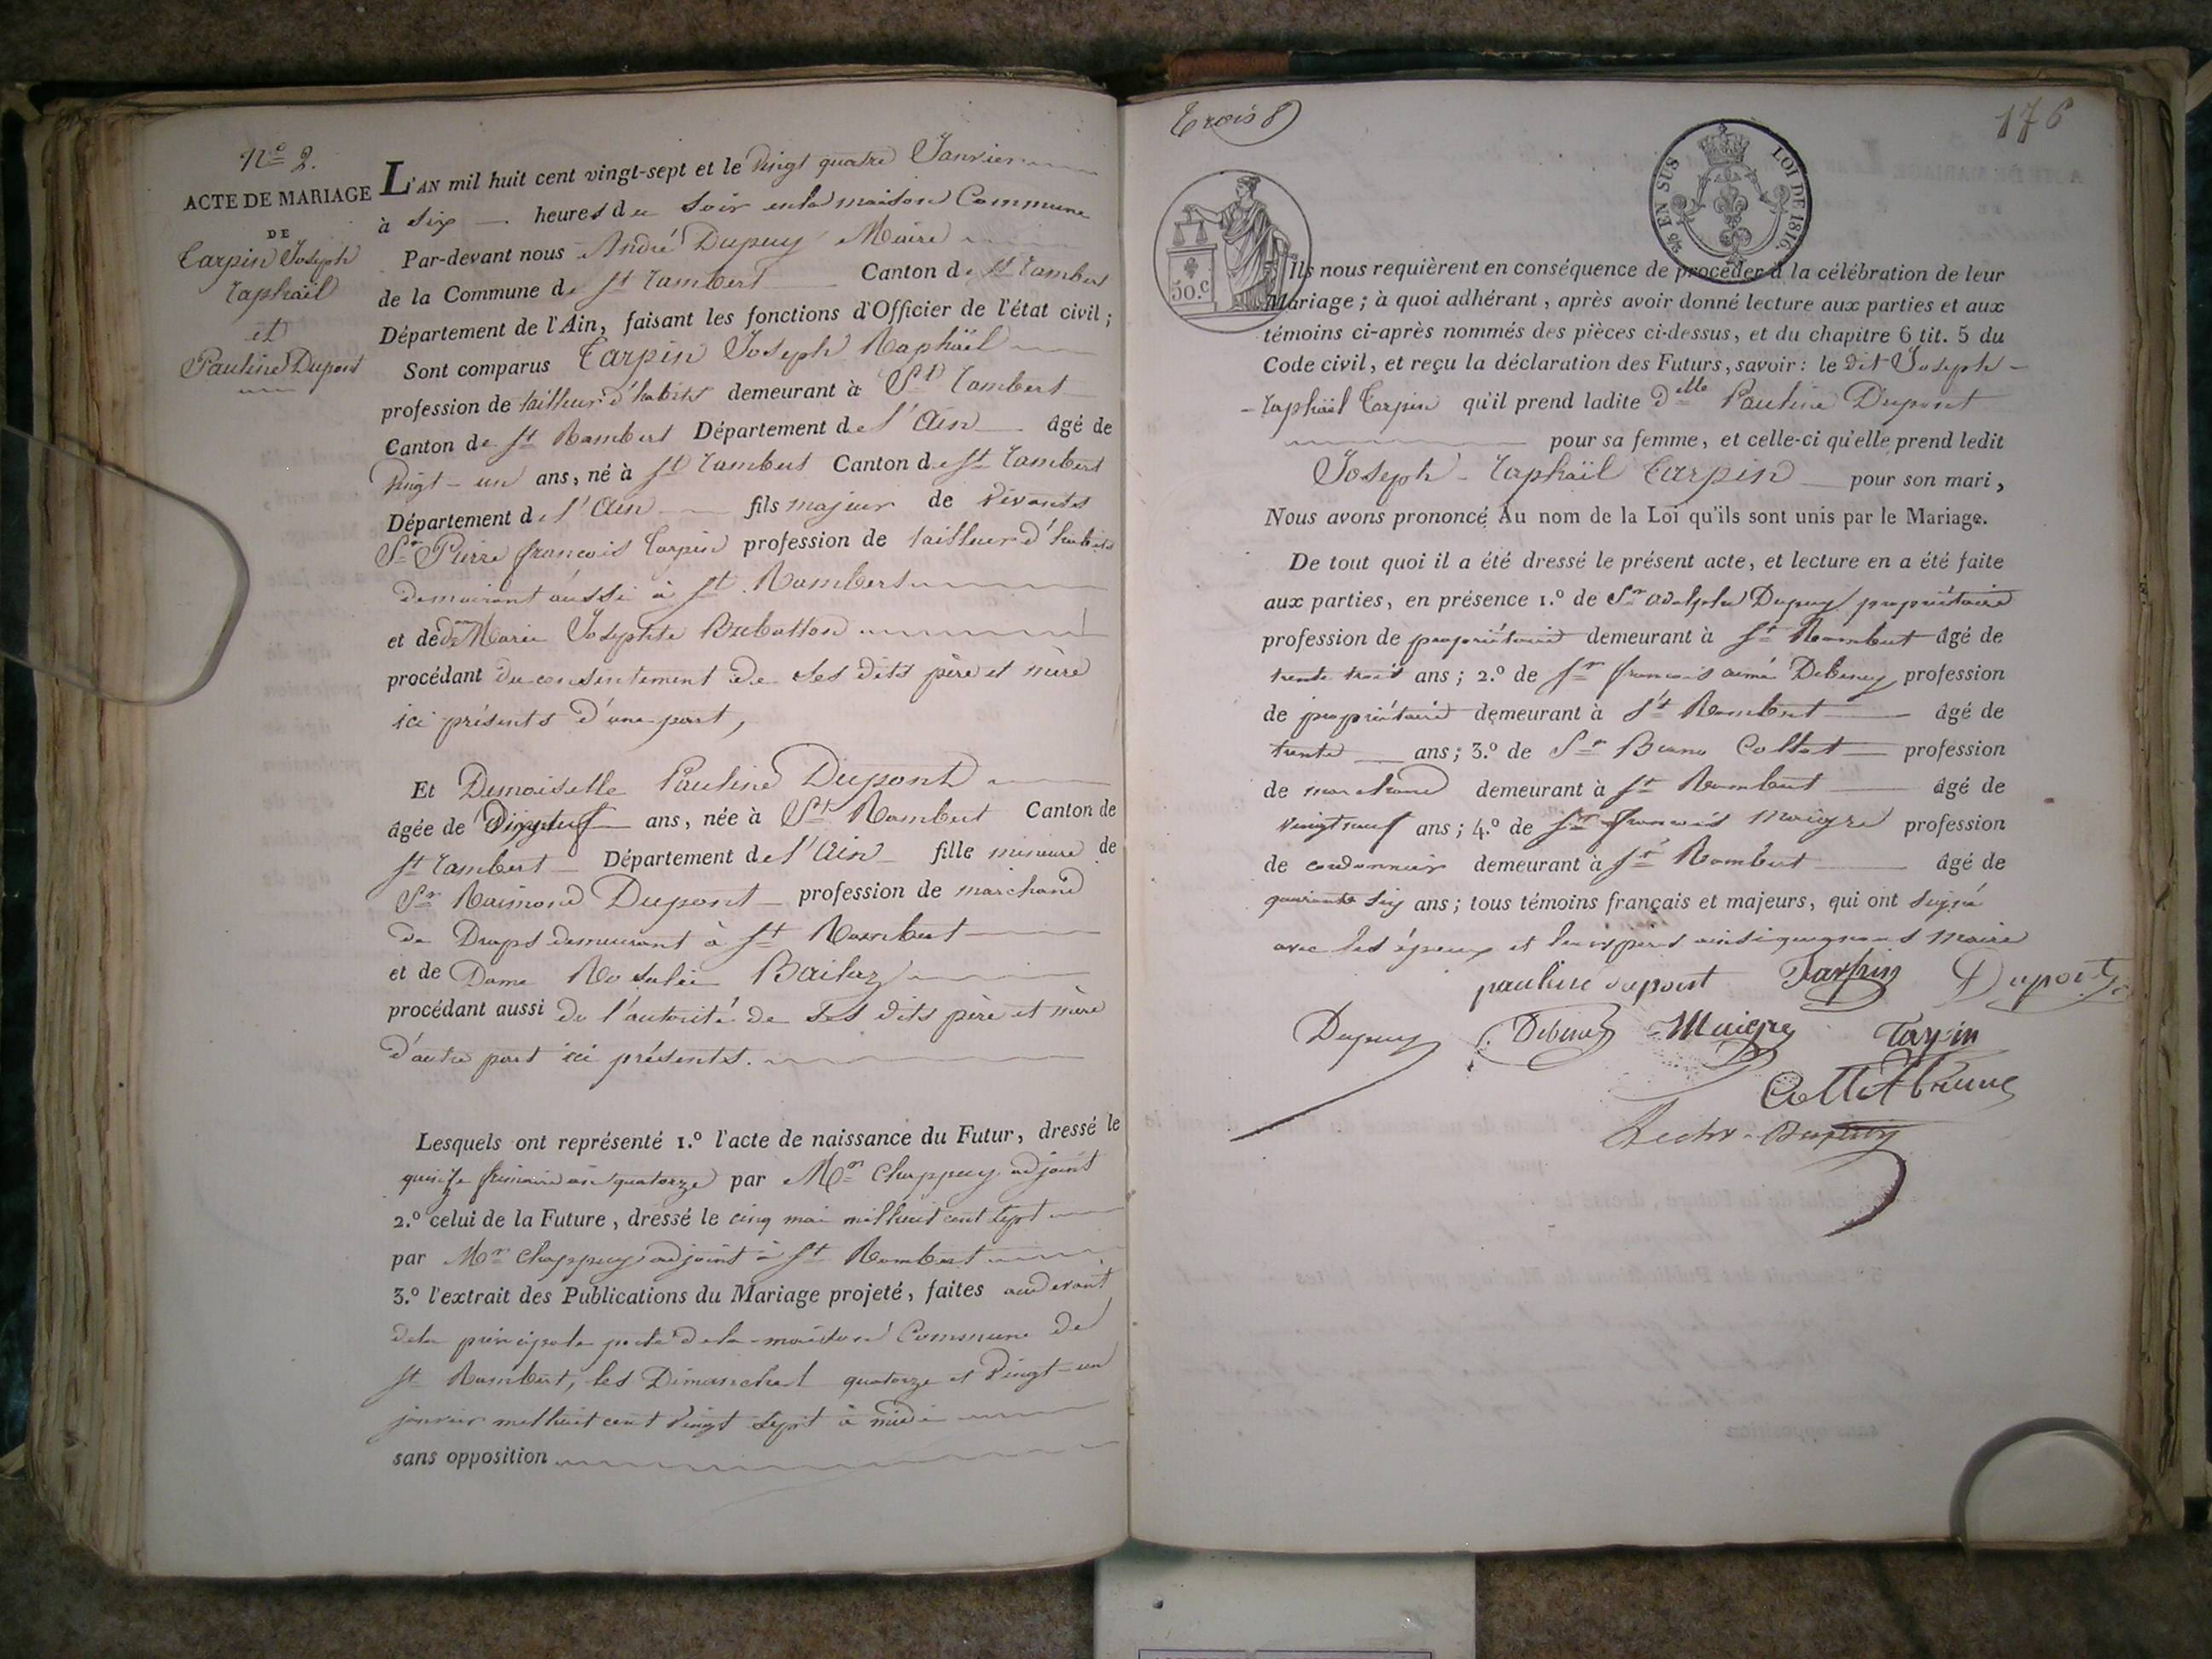 N.º 2.
ACTE DE MARIAGE
DE
Tarpin Joseph
Raphaël
et
Pauline Dupont
L'AN mil huit cent vingt-sept et le vingt quatre Janvier
à six heures du soir en la maison Commune
Par-devant nous André Dupuy Maire
de la Commune de St Rambert Canton de St Rambert
Département de l'Ain, faisant les fonctions d'Officier de l'état civil;
Sont comparus Tarpin Joseph Raphaël
profession de tailleur d'habits demeurant à St Rambert
Canton de St Rambert Département de l'Ain âgé de
vingt-un ans, né à St Rambert Canton de St Rambert
Département de l'Ain fils majeur de vivants
Sr Pierre françois Tarpin profession de tailleur d'habits
demeurant aussi à St Rambert
et de de Marie Josephte
procédant du consentement de ses dits père et mère
ici présents d'une part,
Et Demoiselle Pauline Dupont
âgée de Dixneuf ans, née à St Rambert Canton de
St Rambert Département de l'Ain fille mineure de
Sr Raimond Dupont profession de marchand
de Draps demeurant à St Rambert
et de Dame Rosalie Bailaz
procédant aussi de l'autorité de ses dits père et mère
d'autre part ici présents.
Lesquels ont représenté 1.º l'acte de naissance du Futur, dressé le
quinze frimaire an quatorze par Mr Chappuy adjoint
2.º celui de la Future, dressé le cinq mai mil huit cent sept
par Mr Chappuy adjoint à St Rambert
3.º l'extrait des Publications du Mariage projeté, faites au devant
de la principale porte de la maison Commune de
St Rambert, les Dimanches quatorze et vingt-un
janvier mil huit cent vingt sept à midi
sans opposition
Trois
176
EN SUS
LOI DE 1816.
50.C
Ils nous requièrent en conséquence de procéder à la célébration de leur
Mariage; à quoi adhérant, après avoir donné lecture aux parties et aux
témoins ci-après nommés des pièces ci-dessus, et du chapitre 6 tit. 5 du
Code civil, et reçu la déclaration des Futurs, savoir: le dit Joseph-
-Raphaël Tarpin qu'il prend ladite delle Pauline Dupont
pour sa femme, et celle-ci qu'elle prend ledit
Joseph-Raphaël Tarpin pour son mari,
Nous avons prononcé Au nom de la Loi qu'ils sont unis par le Mariage.
De tout quoi il a été dressé le présent acte, et lecture en a été faite
aux parties, en présence 1.º de Sr Adolphe Dupuy propriétaire
profession de propriétaire demeurant à St Rambert âgé de
trente trois ans; 2.º de Sr françois aimé Debeney profession
de propriétaire demeurant à St Rambert âgé de
trente ans; 3.º de Sr Bruno Collet profession
de marchand demeurant à St Rambert âgé de
vingt neuf ans; 4.º de Sr françois Maigre profession
de cordonnier demeurant à St Rambert âgé de
quarante six ans; tous témoins français et majeurs, qui ont signé
avec les époux et leurs pères ainsi que nous Maire
pauline dupont Tarpin Dupont
Dupuy Debeney Maigre Tarpin
Collet Bruno
Dupuy